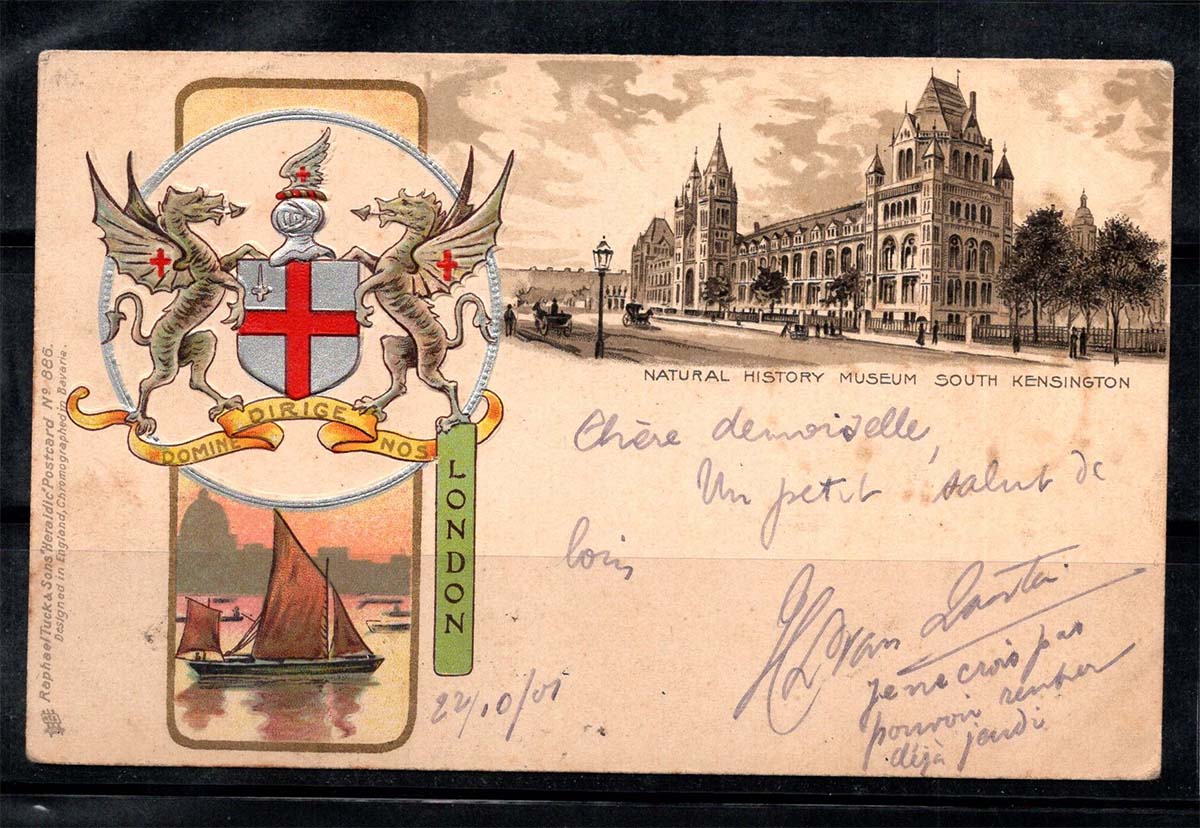 Raphael Tuck & Sons "Heraldic" Postcard No 886.
Designed in England, Chromographed in Bavaria.
DOMINE DIRIGE NOS
LONDON
NATURAL HISTORY MUSEUM SOUTH KENSINGTON
Chère demoiselle,
Un petit salut de
loin
van
je ne crois pas
pouvoir rentrer
déjà jeudi
22/10/01